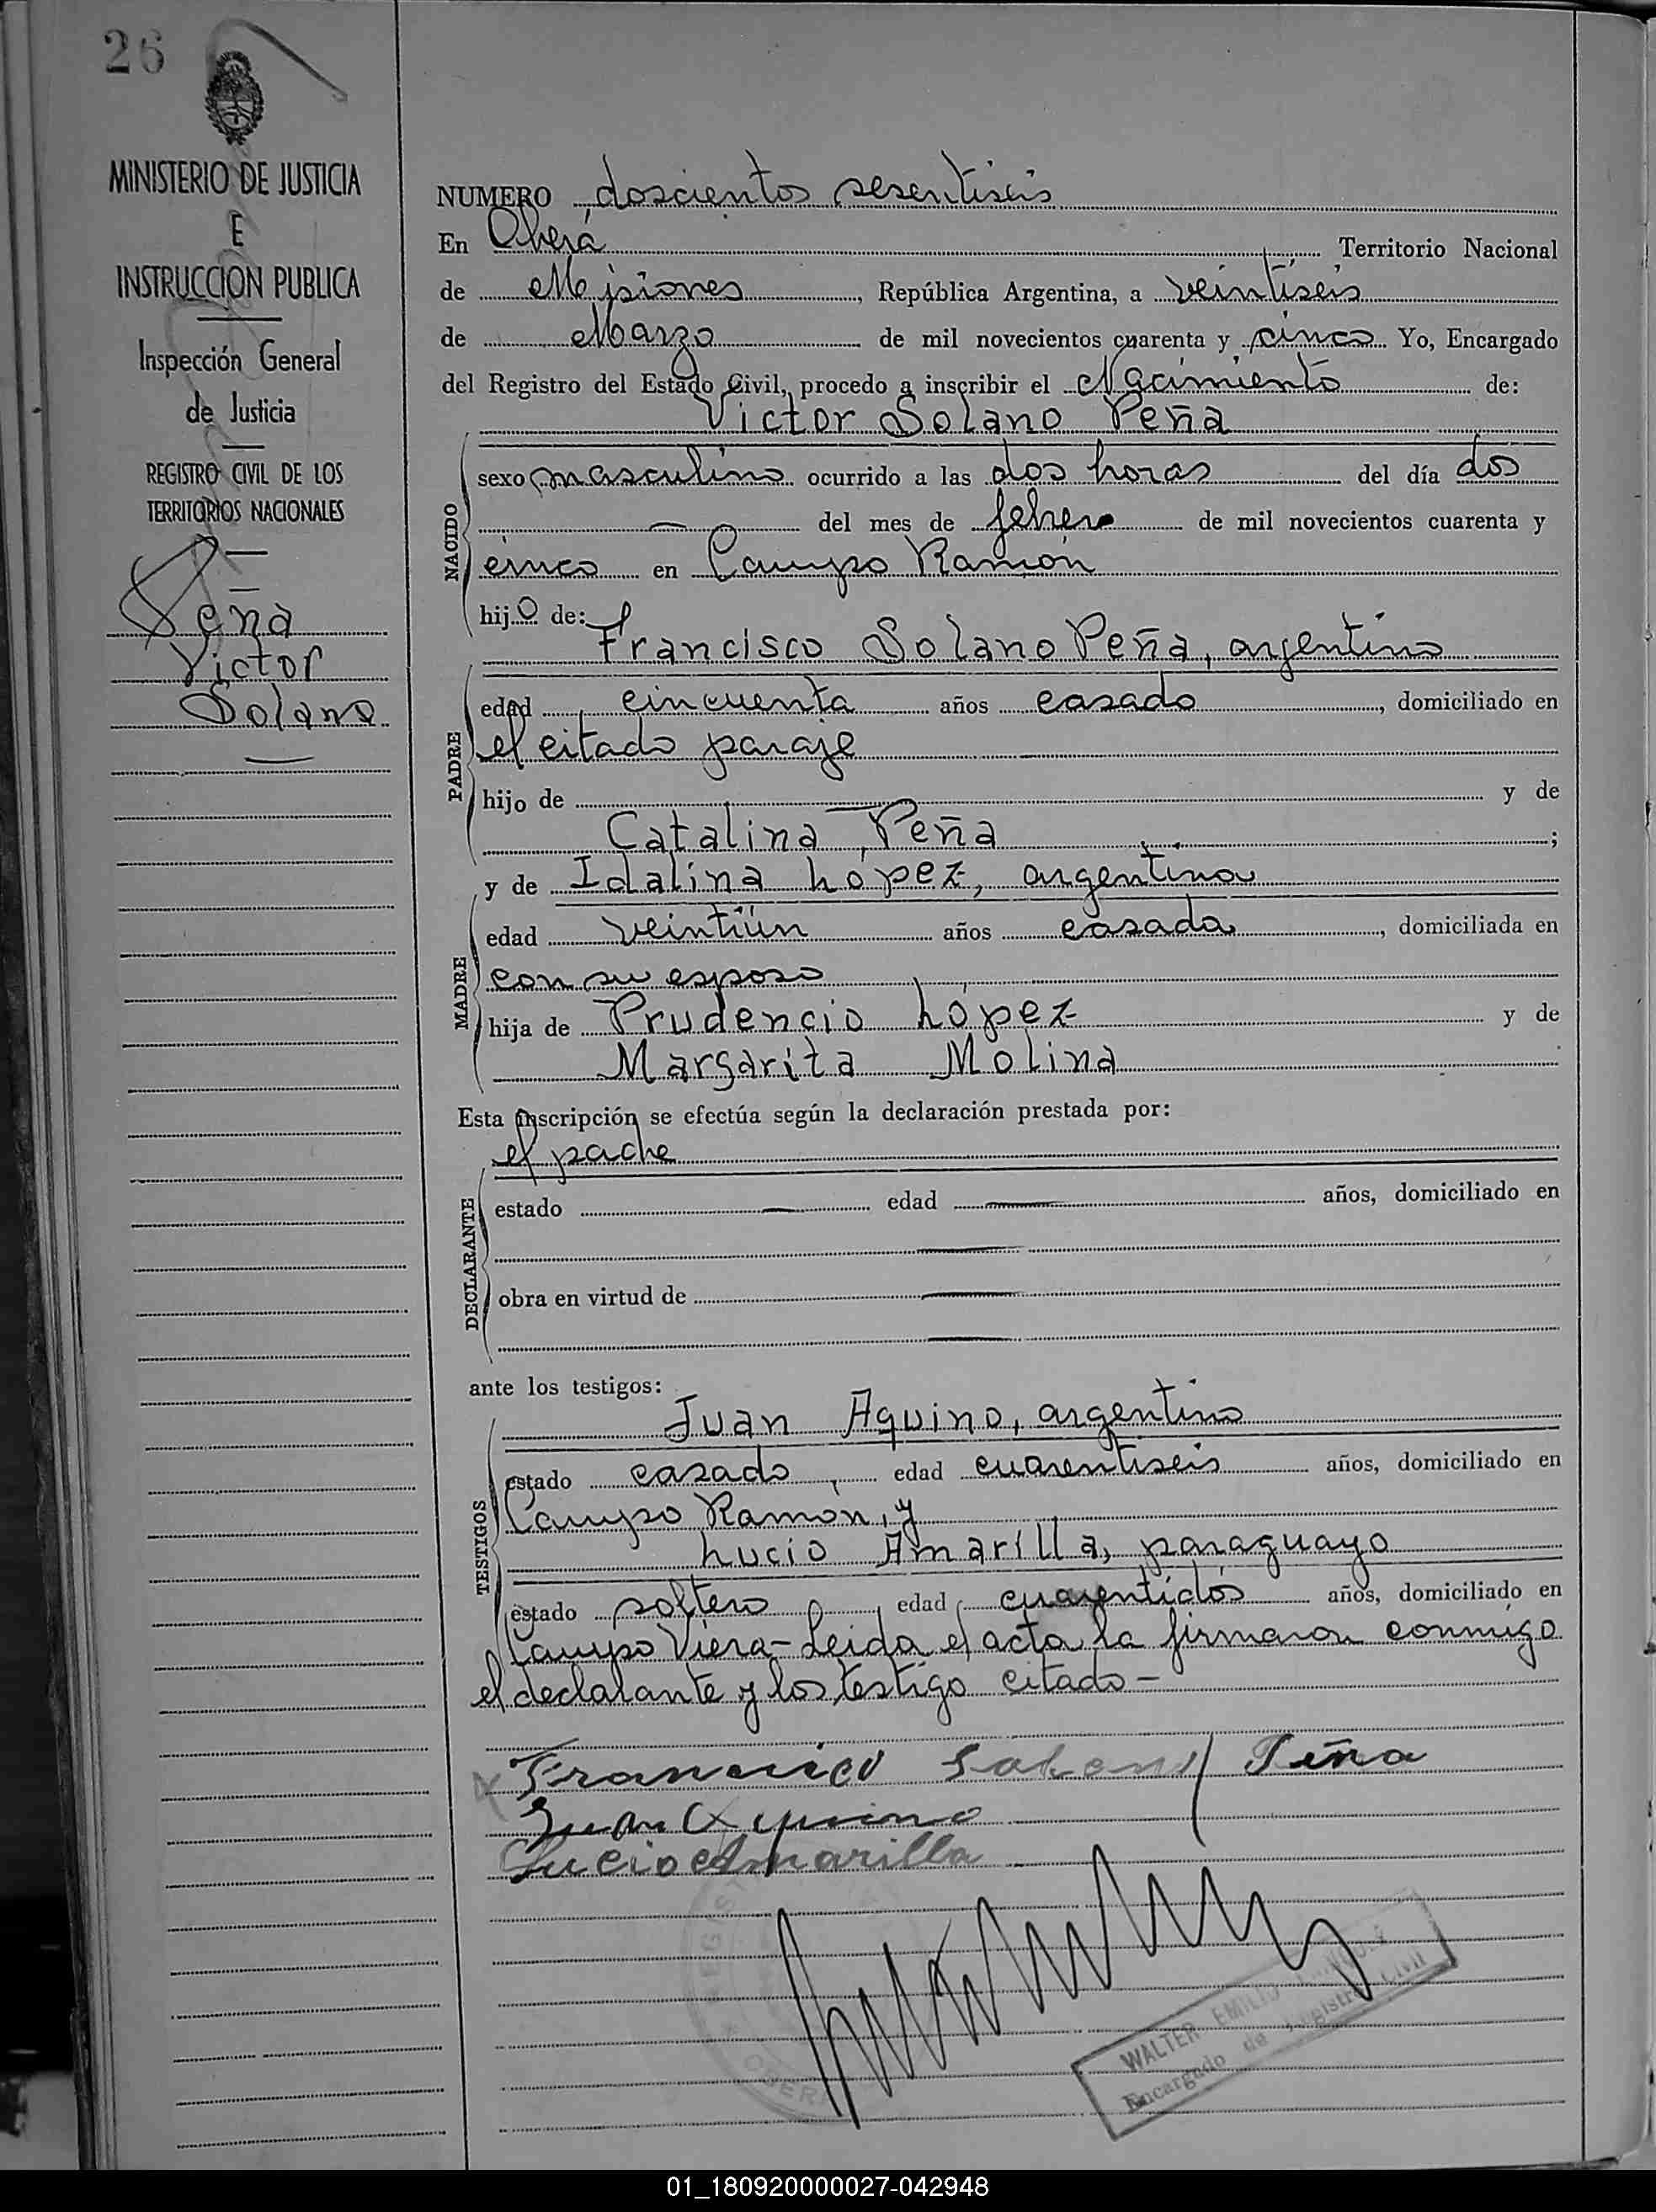 26
MINISTERIO DE JUSTICIA
E
INSTRUCCION PUBLICA
Inspección General
de Justicia
REGISTRO CIVIL DE LOS
TERRITORIOS NACIONALES
Peña
Victor
Solano
NUMERO doscientos sesentiseis
En Oberá Territorio Nacional
de Misiones, República Argentina, a veintiseis
de Marzo de mil novecientos cuarenta y cinco Yo, Encargado
del Registro del Estado Civil, procedo a inscribir el Nacimiento de:
Victor Solano Peña
NACIDO
sexo masculino ocurrido a las dos horas del día dos
del mes de febrero de mil novecientos cuarenta y
cinco en Campo Ramón
hijo de:
Francisco Solano Peña, argentino
PADRE
edad cincuenta años casado, domiciliado en
el citado paraje
hijo de y de
Catalina Peña ;
y de Idalina López, argentina
MADRE
edad veintiún años casada, domiciliada en
con su esposo
hija de Prudencio López y de
Margarita Molina
Esta inscripción se efectúa según la declaración prestada por:
el padre
DECLARANTE
estado edad años, domiciliado en
obra en virtud de
ante los testigos:
Juan Aquino, argentino
TESTIGOS
estado casado, edad cuarentiseis años, domiciliado en
Campo Ramón, y
Lucio Amarilla, paraguayo
estado soltero, edad cuarentidós años, domiciliado en
Campo Viera - Leida el acta la firmaron conmigo
el declarante y los testigo citado -
Francisco Peña
Juan Aquino
Lucio Amarilla
WALTER EMILIO
Encargado de Registro Civil
01_180920000027-042948